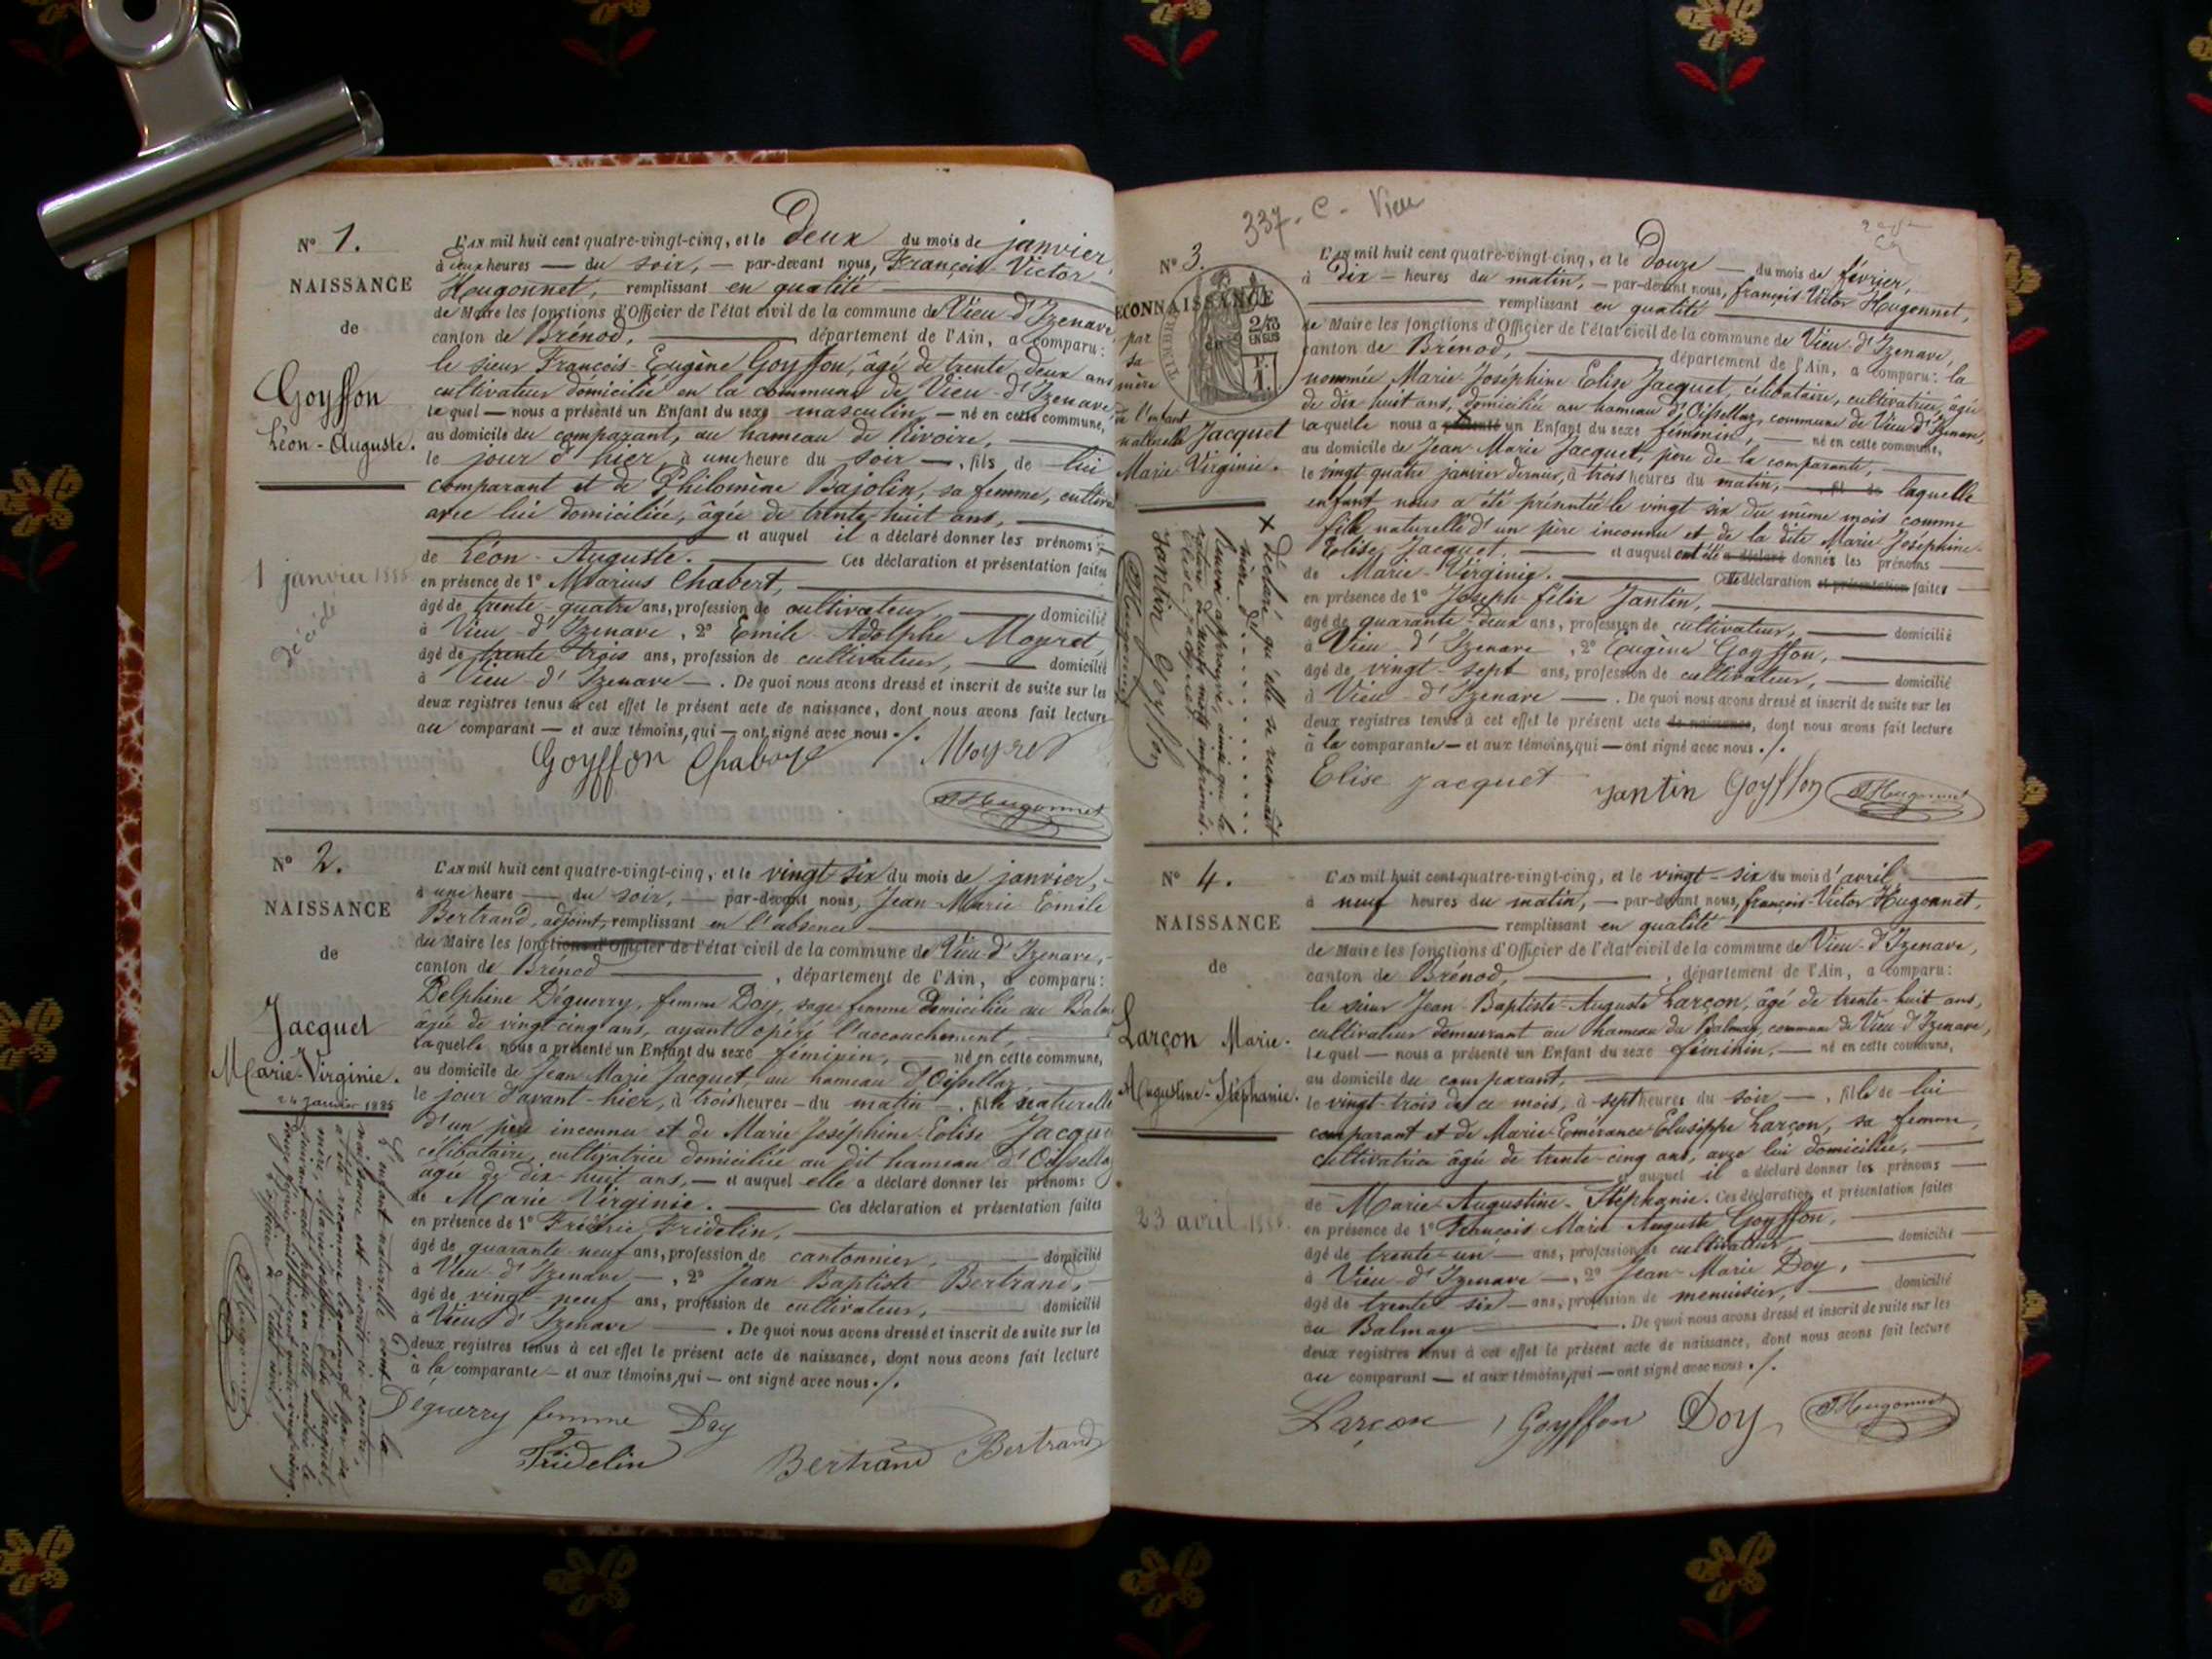 N° 1.
NAISSANCE
de
Goyffon
Léon-Auguste.
1 janvier 1885
décédé
L'AN mil huit cent quatre-vingt-cinq, et le deux du mois de janvier,
à deux heures — du soir, — par-devant nous, François-Victor
Hugonnet, remplissant en qualité
de Maire les fonctions d'Officier de l'état civil de la commune de Vieu-d'Izenave
canton de Brénod, département de l'Ain, a comparu:
le sieur François-Eugène Goyffon, âgé de trente deux ans
cultivateur domicilié en la commune de Vieu-d'Izenave
lequel — nous a présenté un Enfant du sexe masculin, — né en cette commune,
au domicile du comparant, au hameau de Rivoire,
le jour d'hier, à une heure du soir —, fils de lui
comparant et de Philomène Bajolin, sa femme,
avec lui domiciliée, âgée de trente-huit ans,
et auquel il a déclaré donner les prénoms
de Léon-Auguste. Ces déclaration et présentation faites
en présence de 1° Marius Chabert,
âgé de trente-quatre ans, profession de cultivateur, domicilié
à Vieu-d'Izenave, 2° Emile-Adolphe Moyret,
âgé de trente-trois ans, profession de cultivateur, domicilié
à Vieu-d'Izenave —. De quoi nous avons dressé et inscrit de suite sur les
deux registres tenus à cet effet le présent acte de naissance, dont nous avons fait lecture
au comparant — et aux témoins, qui — ont signé avec nous ./.
Goyffon Moyret
Hugonnet
N° 2.
NAISSANCE
de
Jacquet
Marie-Virginie.
24 janvier 1885
L'enfant naturelle dont la
naissance est inscrite ci-contre,
a été reconnue légalement par sa
mère, Marie Joséphine Elise Jacquet,
suivant acte passé en cette mairie le
douze février mil huit cent quatre-vingt-cinq.
L'officier de l'état civil,
Hugonnet
L'AN mil huit cent quatre-vingt-cinq, et le vingt-six du mois de janvier,
à une heure — du soir, — par-devant nous, Jean-Marie Emile
Bertrand, adjoint, remplissant en l'absence
du Maire les fonctions d'Officier de l'état civil de la commune de Vieu-d'Izenave,
canton de Brénod, département de l'Ain, a comparu:
Delphine Déguerry, femme Doy, sage femme domiciliée au
âgée de vingt-cinq ans, ayant opéré l'accouchement,
laquelle nous a présenté un Enfant du sexe féminin, né en cette commune,
au domicile de Jean Marie Jacquet, au hameau d'Oisellaz,
le jour d'avant-hier, à trois heures — du matin —, fille naturelle
d'un père inconnu et de Marie Joséphine-Elise Jacquet
célibataire, cultivatrice domiciliée au dit hameau d'Oisellaz
agée de dix-huit ans, — et auquel elle a déclaré donner les prénoms
de Marie Virginie. Ces déclaration et présentation faites
en présence de 1° Fridelin,
âgé de quarante-neuf ans, profession de cantonnier, domicilié
à Vieu-d'Izenave —, 2° Jean-Baptiste Bertrand,
âgé de vingt-neuf ans, profession de cultivateur, domicilié
à Vieu d'Izenave. De quoi nous avons dressé et inscrit de suite sur les
deux registres tenus à cet effet le présent acte de naissance, dont nous avons fait lecture
à la comparante — et aux témoins, qui — ont signé avec nous ./.
Déguerry femme Doy
Fridelin Bertrand Bertrand
337. C - Vieu
N° 3.
RECONNAISSANCE
par
sa
mère
de l'enfant
naturelle Jacquet
Marie-Virginie.
TIMBRE
2/10
EN SUS
1 F.
X déclaré qu'elle se reconnaît
mère d
Renvoi approuvé, ainsi que la
rature de mots imprimés.
Elise Jacquet
Jantin Goyffon
Hugonnet
L'AN mil huit cent quatre-vingt-cinq, et le douze — du mois de février,
à dix — heures du matin, — par-devant nous, françois-Victor Hugonnet,
remplissant en qualité
de Maire les fonctions d'Officier de l'état civil de la commune de Vieu-d'Izenave,
canton de Brénod, département de l'Ain, a comparu: la
nommée Marie-Joséphine Elise Jacquet, célibataire, cultivatrice, âgée
de dix huit ans, domiciliée au hameau d'Oisellaz, commune de Vieu d'Izenave,
laquelle nous a présenté un Enfant du sexe féminin, — né en cette commune,
au domicile de Jean-Marie Jacquet, père de la comparante,
le vingt quatre janvier dernier, à trois heures du matin, fil de laquelle
enfant nous a été présentée le vingt six du même mois comme
fille naturelle d'un père inconnu et de la dite Marie Joséphine-
Elise Jacquet. et auquel ont été a déclaré donnés les prénoms
de Marie-Virginie. Cette déclaration et présentation faites
en présence de 1° Joseph-félix Jantin,
âgé de quarante-deux ans, profession de cultivateur, domicilié
à Vieu d'Izenave, 2° Eugène Goyffon,
âgé de vingt-sept ans, profession de cultivateur, domicilié
à Vieu-d'Izenave —. De quoi nous avons dressé et inscrit de suite sur les
deux registres tenus à cet effet le présent acte de naissance, dont nous avons fait lecture
à la comparante — et aux témoins, qui — ont signé avec nous ./.
Elise Jacquet Jantin Goyffon Hugonnet
N° 4.
NAISSANCE
de
Larçon Marie-
Augustine-Stéphanie.
23 avril 1885.
L'AN mil huit cent quatre-vingt-cinq, et le vingt-six du mois d'avril,
à neuf heures du matin, — par-devant nous, françois-Victor Hugonnet,
remplissant en qualité
de Maire les fonctions d'Officier de l'état civil de la commune de Vieu-d'Izenave,
canton de Brénod, département de l'Ain, a comparu:
le sieur Jean-Baptiste-Auguste Larçon, âgé de trente-huit ans,
cultivateur demeurant au hameau du Balmay, commune de Vieu d'Izenave,
lequel — nous a présenté un Enfant du sexe féminin, — né en cette commune,
au domicile du comparant,
le vingt-trois de ce mois, à sept heures du soir —, fille de lui
comparant et de Marie-Emérance Larçon, sa femme,
cultivatrice âgée de trente-cinq ans, avec lui domiciliée,
et auquel il a déclaré donner les prénoms
de Marie-Augustine-Stéphanie. Ces déclaration et présentation faites
en présence de 1° François Marie Auguste Goyffon,
âgé de trente-un — ans, profession de cultivateur domicilié
à Vieu-d'Izenave —, 2° Jean-Marie Doy,
âgé de trente-six — ans, profession de menuisier, domicilié
au Balmay. De quoi nous avons dressé et inscrit de suite sur les
deux registres tenus à cet effet le présent acte de naissance, dont nous avons fait lecture
au comparant — et aux témoins, qui — ont signé avec nous ./.
Larçon Goyffon Doy Hugonnet